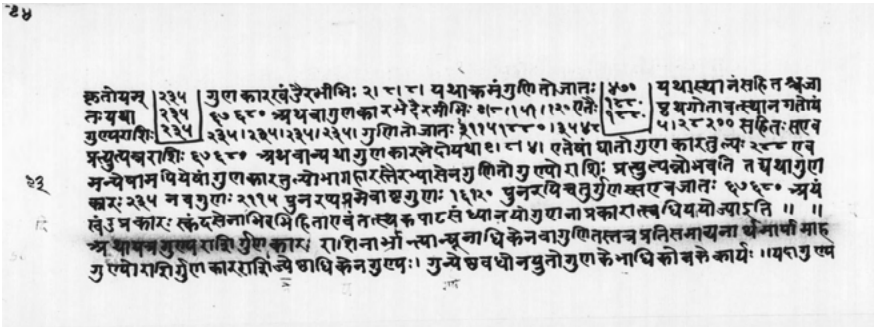 २४
कृतोयम् २३५ गुणकारखंडैरभीभिः २।८।८। यथाक्रमं गुणितो जातः ४७० यथास्थानं सहितश्च जा
तः यथा २३५ ६७६८० अथवा गुणकारभेदैरमीभिः ९।८।१५१।१२० एतैः १८८०
गुण्यराशिः २३५ २३५।२३५।२३५।२३५। गुणितो जातः २११५१८८०।३५४८ ५।२८२०० सहितः स एव
प्रत्युत्पन्नराशिः ६७६८० अथवान्यथा गुणकारभेदो यथा ९।८।४। एतेषां घातो गुणकारतुल्यः २८८ एव
२३
मन्येषामपि येषां गुणकारतुल्यो भागहारस्तैरभ्यासेन गुणितो गुण्यो राशिः प्रत्युत्पन्नो भवति तद्यथा गुण
कारः २३५ नवगुणः २११५ पुनरप्ययमेवाष्टगुणः १६९२० पुनरपि चतुर्गुणस्स एव जातः ६७६८० अयं
खंडप्रकारः स्कंदसेनाभिरभिहिता एवं तत्स्थकपाटसंध्यानयो गुणनाप्रकारात्स्वधिय योज्याऽति ॥ ॥
अथायत्र गुण्यराशिर्गुणकारः राशिना भ्रान्त्यान्यूनाधिकेन वा गुणितस्तत्र प्रतिसमाधनार्थमार्यामाह
गुण्यो राशिर्गुणकारराशि केन गुण्यः। गुण्येष्ठवधोनयुतो गुणके भाधिकोनके कार्यः ॥ यदा गुण्य